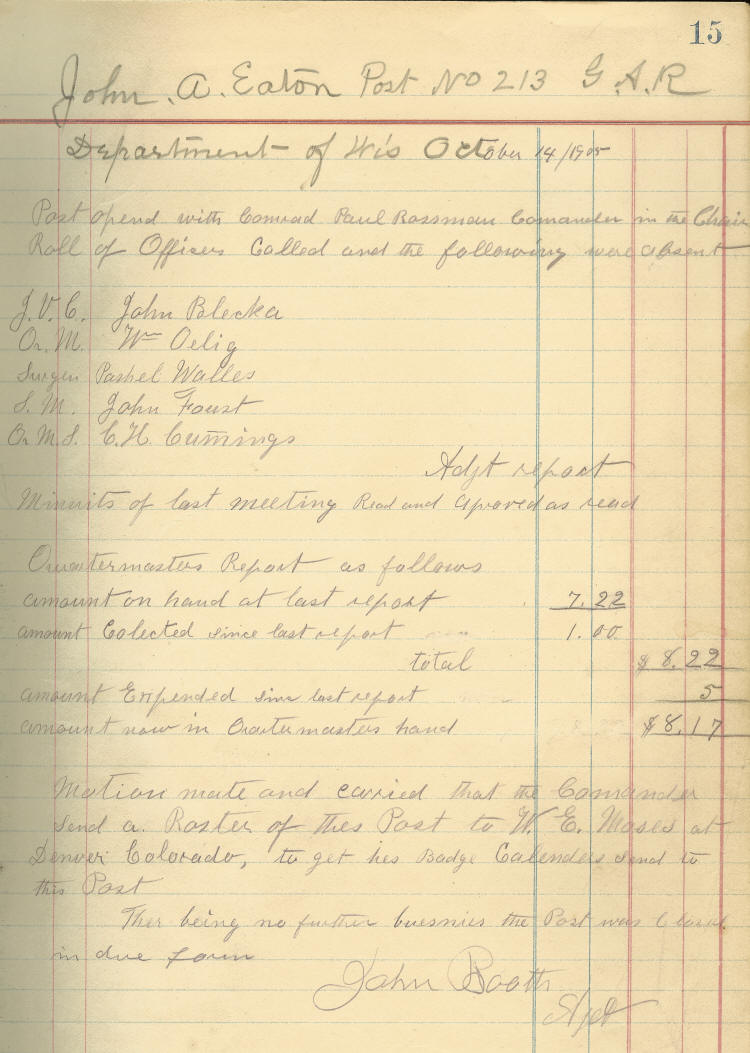 15
John. A. Eaton Post No 213 G. A. R
Department of Wis October 14/1905
Post opend with Comrad Paul Rossman Comander in the Chair
Roll of Officers Called and the following were absent
J. V. C. John Blecka
Qr. M. Wm Oelig
Surgen Pashel Walles
S. M. John Foust
Qr M. S. C. H. Cumings
Adjt report
Minuits of last meeting Read and Aproved as read
Quartermasters Report as follows
amount on hand at last report 7.22
amount Colected since last report 1.00
total $ 8.22
amount Exspended sinc last report 5
amount now in Quartermasters hand $8.17
Motion mate and carried that the Comander
send a. Roster of thes Post to W. E. Moses at
Denver Colorado, to get hes Badge Calenders send to
this Post
Ther being no further buesnies the Post was Closed
in due form
John Booth
Ajet